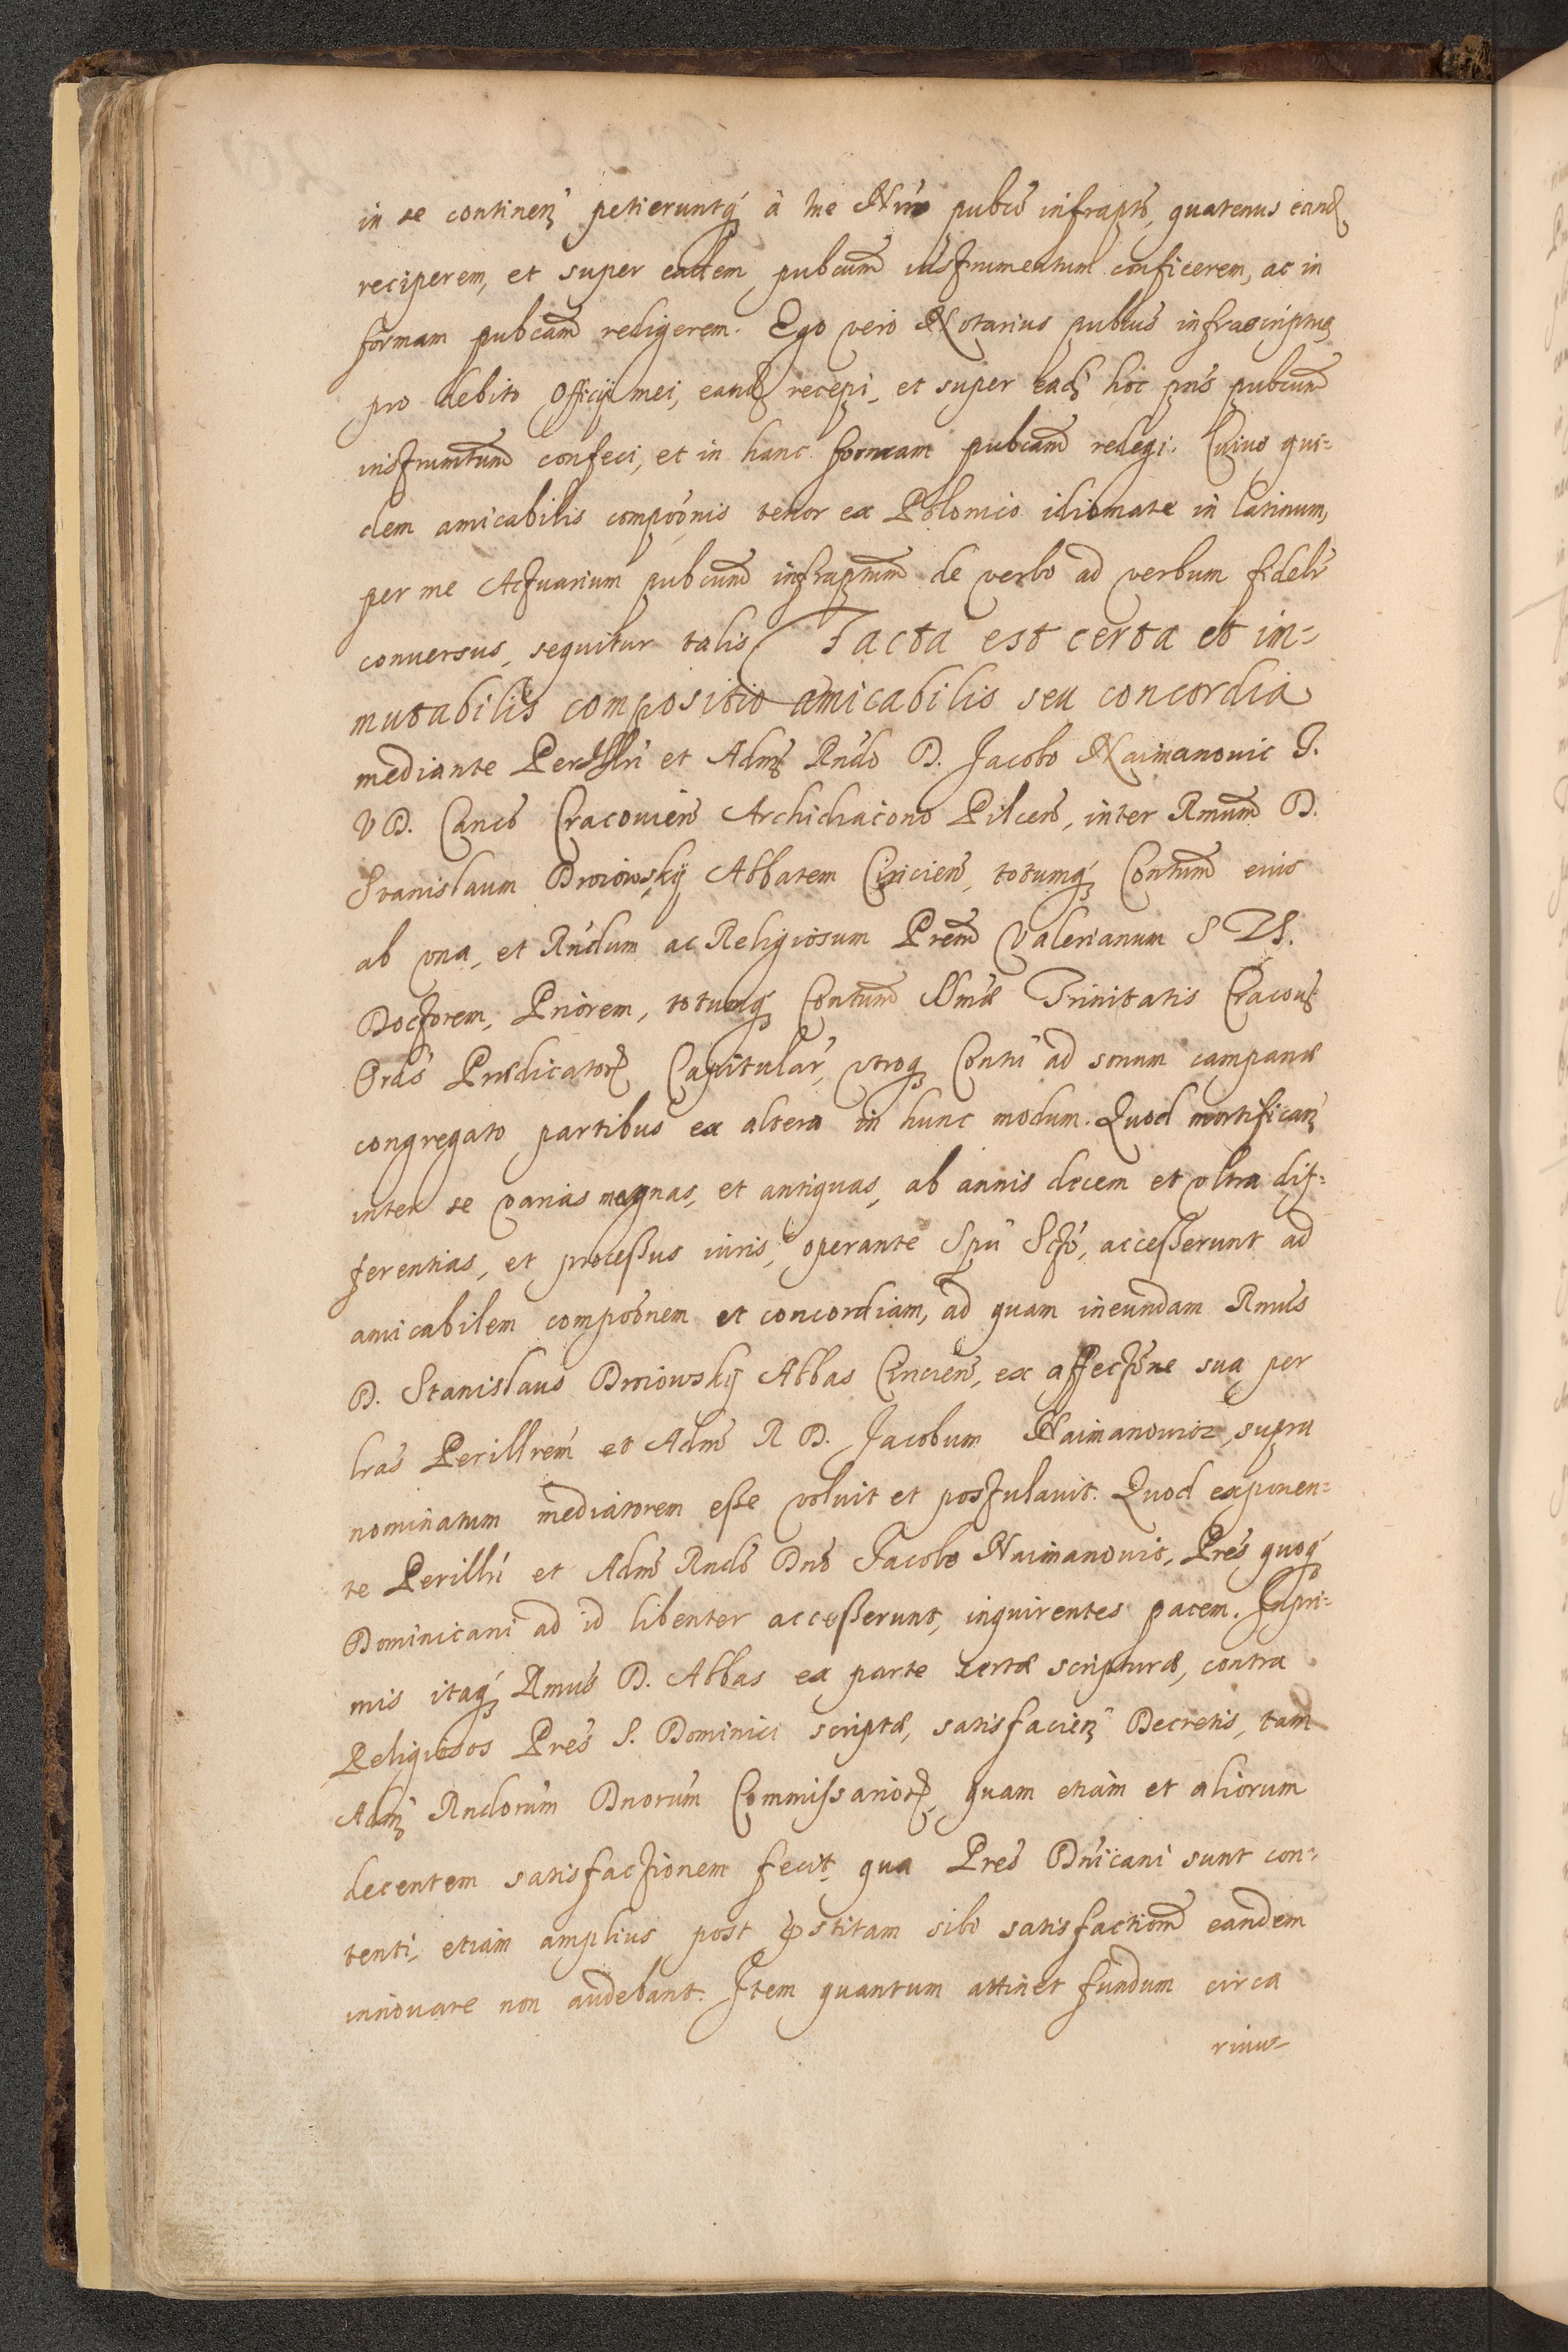 in se continen petieruntq́ à me Nrio pubco infrapto, quatenus eand
reciperem, et super eadem pubcum instrumentum conficerem, ac in
formam pubcam redigerem. Ego vero Notarius publius infrascriptus
pro debito Officij mei, eand recepi, et super ead hoc pns pubcum
instrumtum confeci, et in hanc formam pubcam redegi. Cuius qui-
dem amicabilis compoõnis tenor ex Polonico idiomate in latinum,
per me Actuarium pubcum infraptum de verbo ad verbum fidelr
conuersus, sequitur talis. Facta est certa et in-
mutabilis compositio amicabilis seu concordia
mediante Perillri et Adm Rndo D. Jacobo Naimanouic J.
V D. Canco Cracouien Archidiacono Pilcen, inter Rmum D.
Stanislaum Droiowskÿ Abbatem Ciricien, totumq́ Contum eius
ab vna, et Rndum ac Religiosum Prem Valerianum S Th.
Doctorem, Priorem, totumq́ Contum SSmæ Trinitatis Cracou
Ordis Prædicator Capitular, vtroq Contu ad sonum campanæ
congregato partibus ex altera in hunc modum. Quod mortifican
inter se varias magnas, et antiquas, ab annis decem et vltra dif-
ferentias, et processus iuris, operante Spu Scto, accesserunt ad
amicabilem compoõnem et concordiam, ad quam ineundam Rmus
D. Stanislaus Droiowskÿ Abbas Ciricien, ex affectione sua per
lras Perillrem et Adm R D. Jacobum Naimanouicz, supra
nominatum mediatorem esse voluit et postulauit. Quod exponen-
te Perillri et Adm Rndo Dno Jacobo Naimanouic, Pres quoq́
Dominicani ad id libenter accesserunt, inquirentes pacem. Inpri-
mis itaq́ Rmus D. Abbas ex parte certæ scripturæ, contra
Religiosos Pres S. Dominici scriptæ, satisfacien Decretis, tam
Adm Rndorum Dnorum Commissarior, quam etiam et aliorum
decentem satisfactionem fecit, qua Pres Dnicani sunt con-
tenti, etiam amplius post pstitam sibi satisfactiom eandem
innouare non audebant. Item quantum attinet fundum circa
riuu-